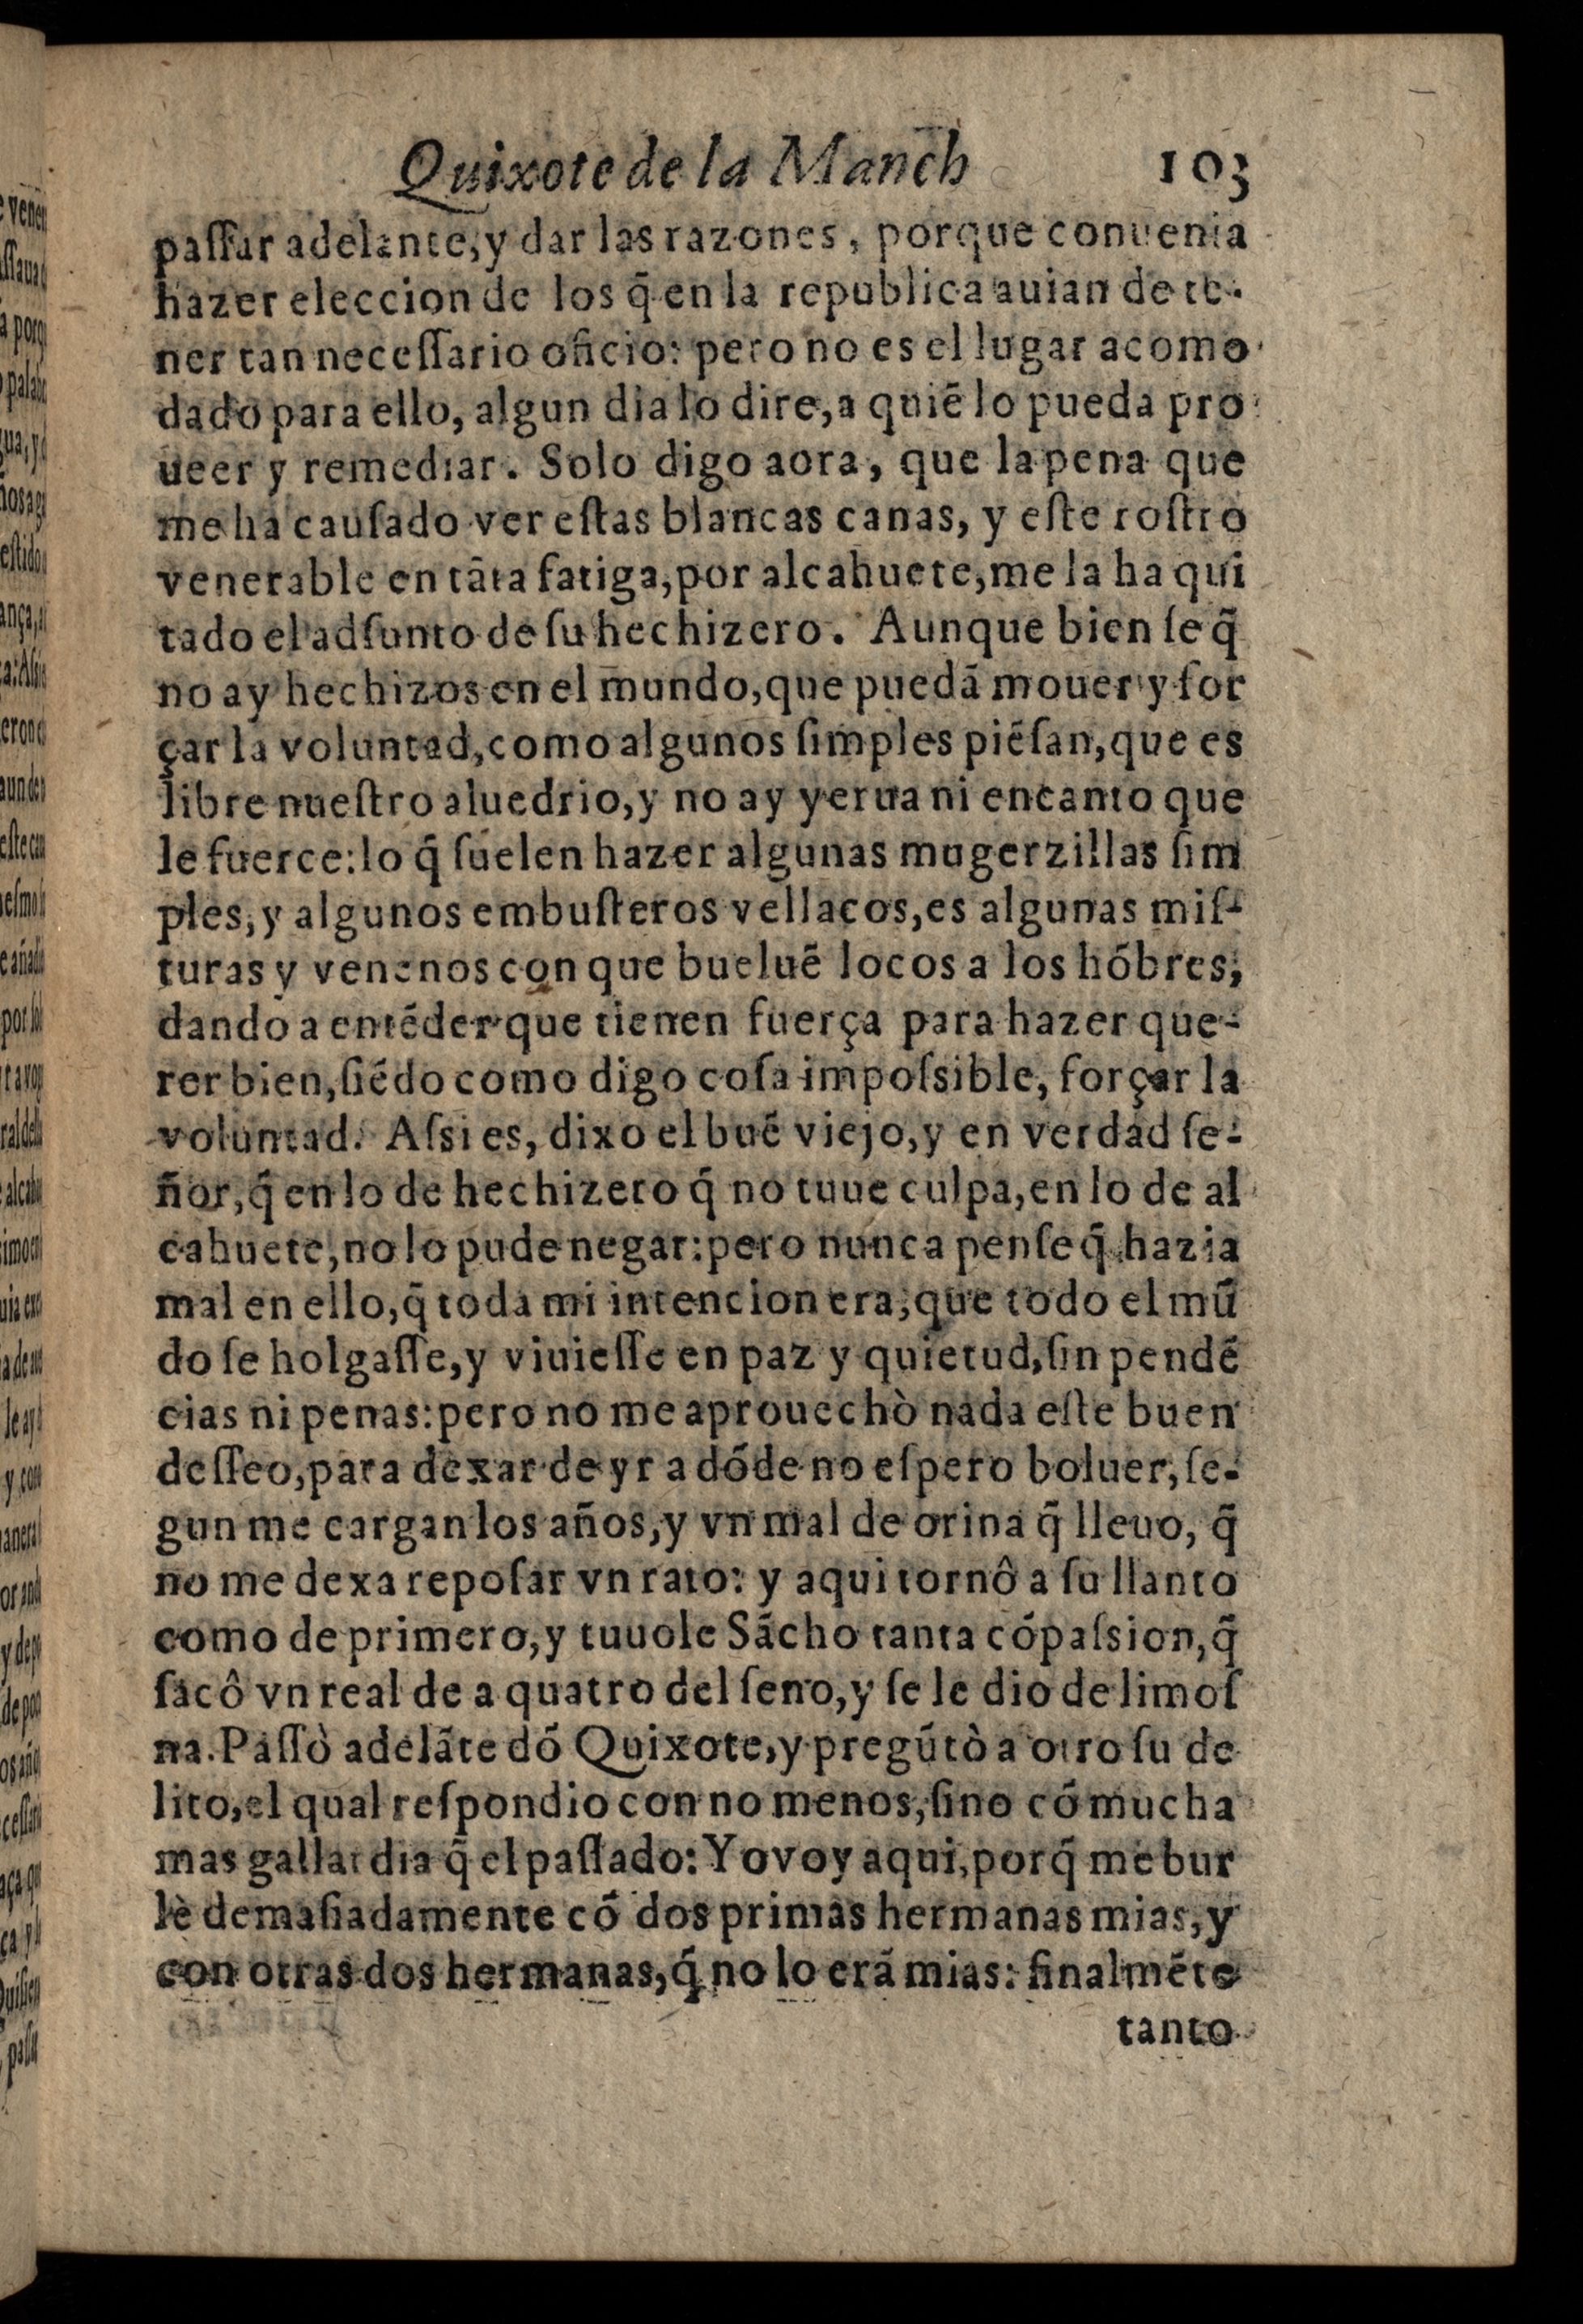 Quixote de la Manch 103
paſſar adelante, y dar las razones, porque conuenia
hazer eleccion de los q̃ en la republica auian de te-
ner tan neceſſario oficio: pero no es el lugar acomo
dado para ello, algun dia lo dire, a quiẽ lo pueda pro
ueer y remediar. Solo digo aora, que la pena que
me ha cauſado ver eſtas blancas canas, y eſte roſtro
venerable en tãta fatiga, por alcahuete, me la ha qui
tado el adſunto de ſu hechizero. Aunque bien ſe q̃
no ay hechizos en el mundo, que puedã mouer y for
çar la voluntad, como algunos ſimples piẽſan, que es
libre nueſtro aluedrio, y no ay yerua ni encanto que
le fuerce: lo q̃ ſuelen hazer algunas mugerzillas ſim
ples, y algunos embuſteros vellacos, es algunas miſ-
turas y venenos con que bueluẽ locos a los hõbres,
dando a entẽder que tienen fuerça para hazer que-
rer bien, ſiẽdo como digo coſa impoſsible, forçar la
voluntad. Aſsi es, dixo el buẽ viejo, y en verdad ſe-
ñor, q̃ en lo de hechizero q̃ no tuue culpa, en lo de al
cahuete, no lo pude negar: pero nunca penſe q̃ hazia
mal en ello, q̃ toda mi intencion era, que todo el mũ
do ſe holgaſſe, y viuieſſe en paz y quietud, ſin pendẽ
cias ni penas: pero no me aprouechò nada eſte buen
deſſeo, para dexar de yr a dõde no eſpero boluer, ſe-
gun me cargan los años, y vn mal de orina q̃ lleuo, q̃
no me dexa repoſar vn rato: y aqui tornô a ſu llanto
como de primero, y tuuole Sãcho tanta cõpaſsion, q̃
ſacô vn real de a quatro del ſeno, y ſe le dio de limoſ
na. Paſſò adelãte dõ Quixote, y pregũtò a otro ſu de
lito, el qual reſpondio con no menos, ſino cõ mucha
mas gallardia q̃ el paſſado: Yo voy aqui, porq̃ me bur
lè demaſiadamente cõ dos primas hermanas mias, y
con otras dos hermanas, q̃ no lo erã mias: finalmẽte
tanto